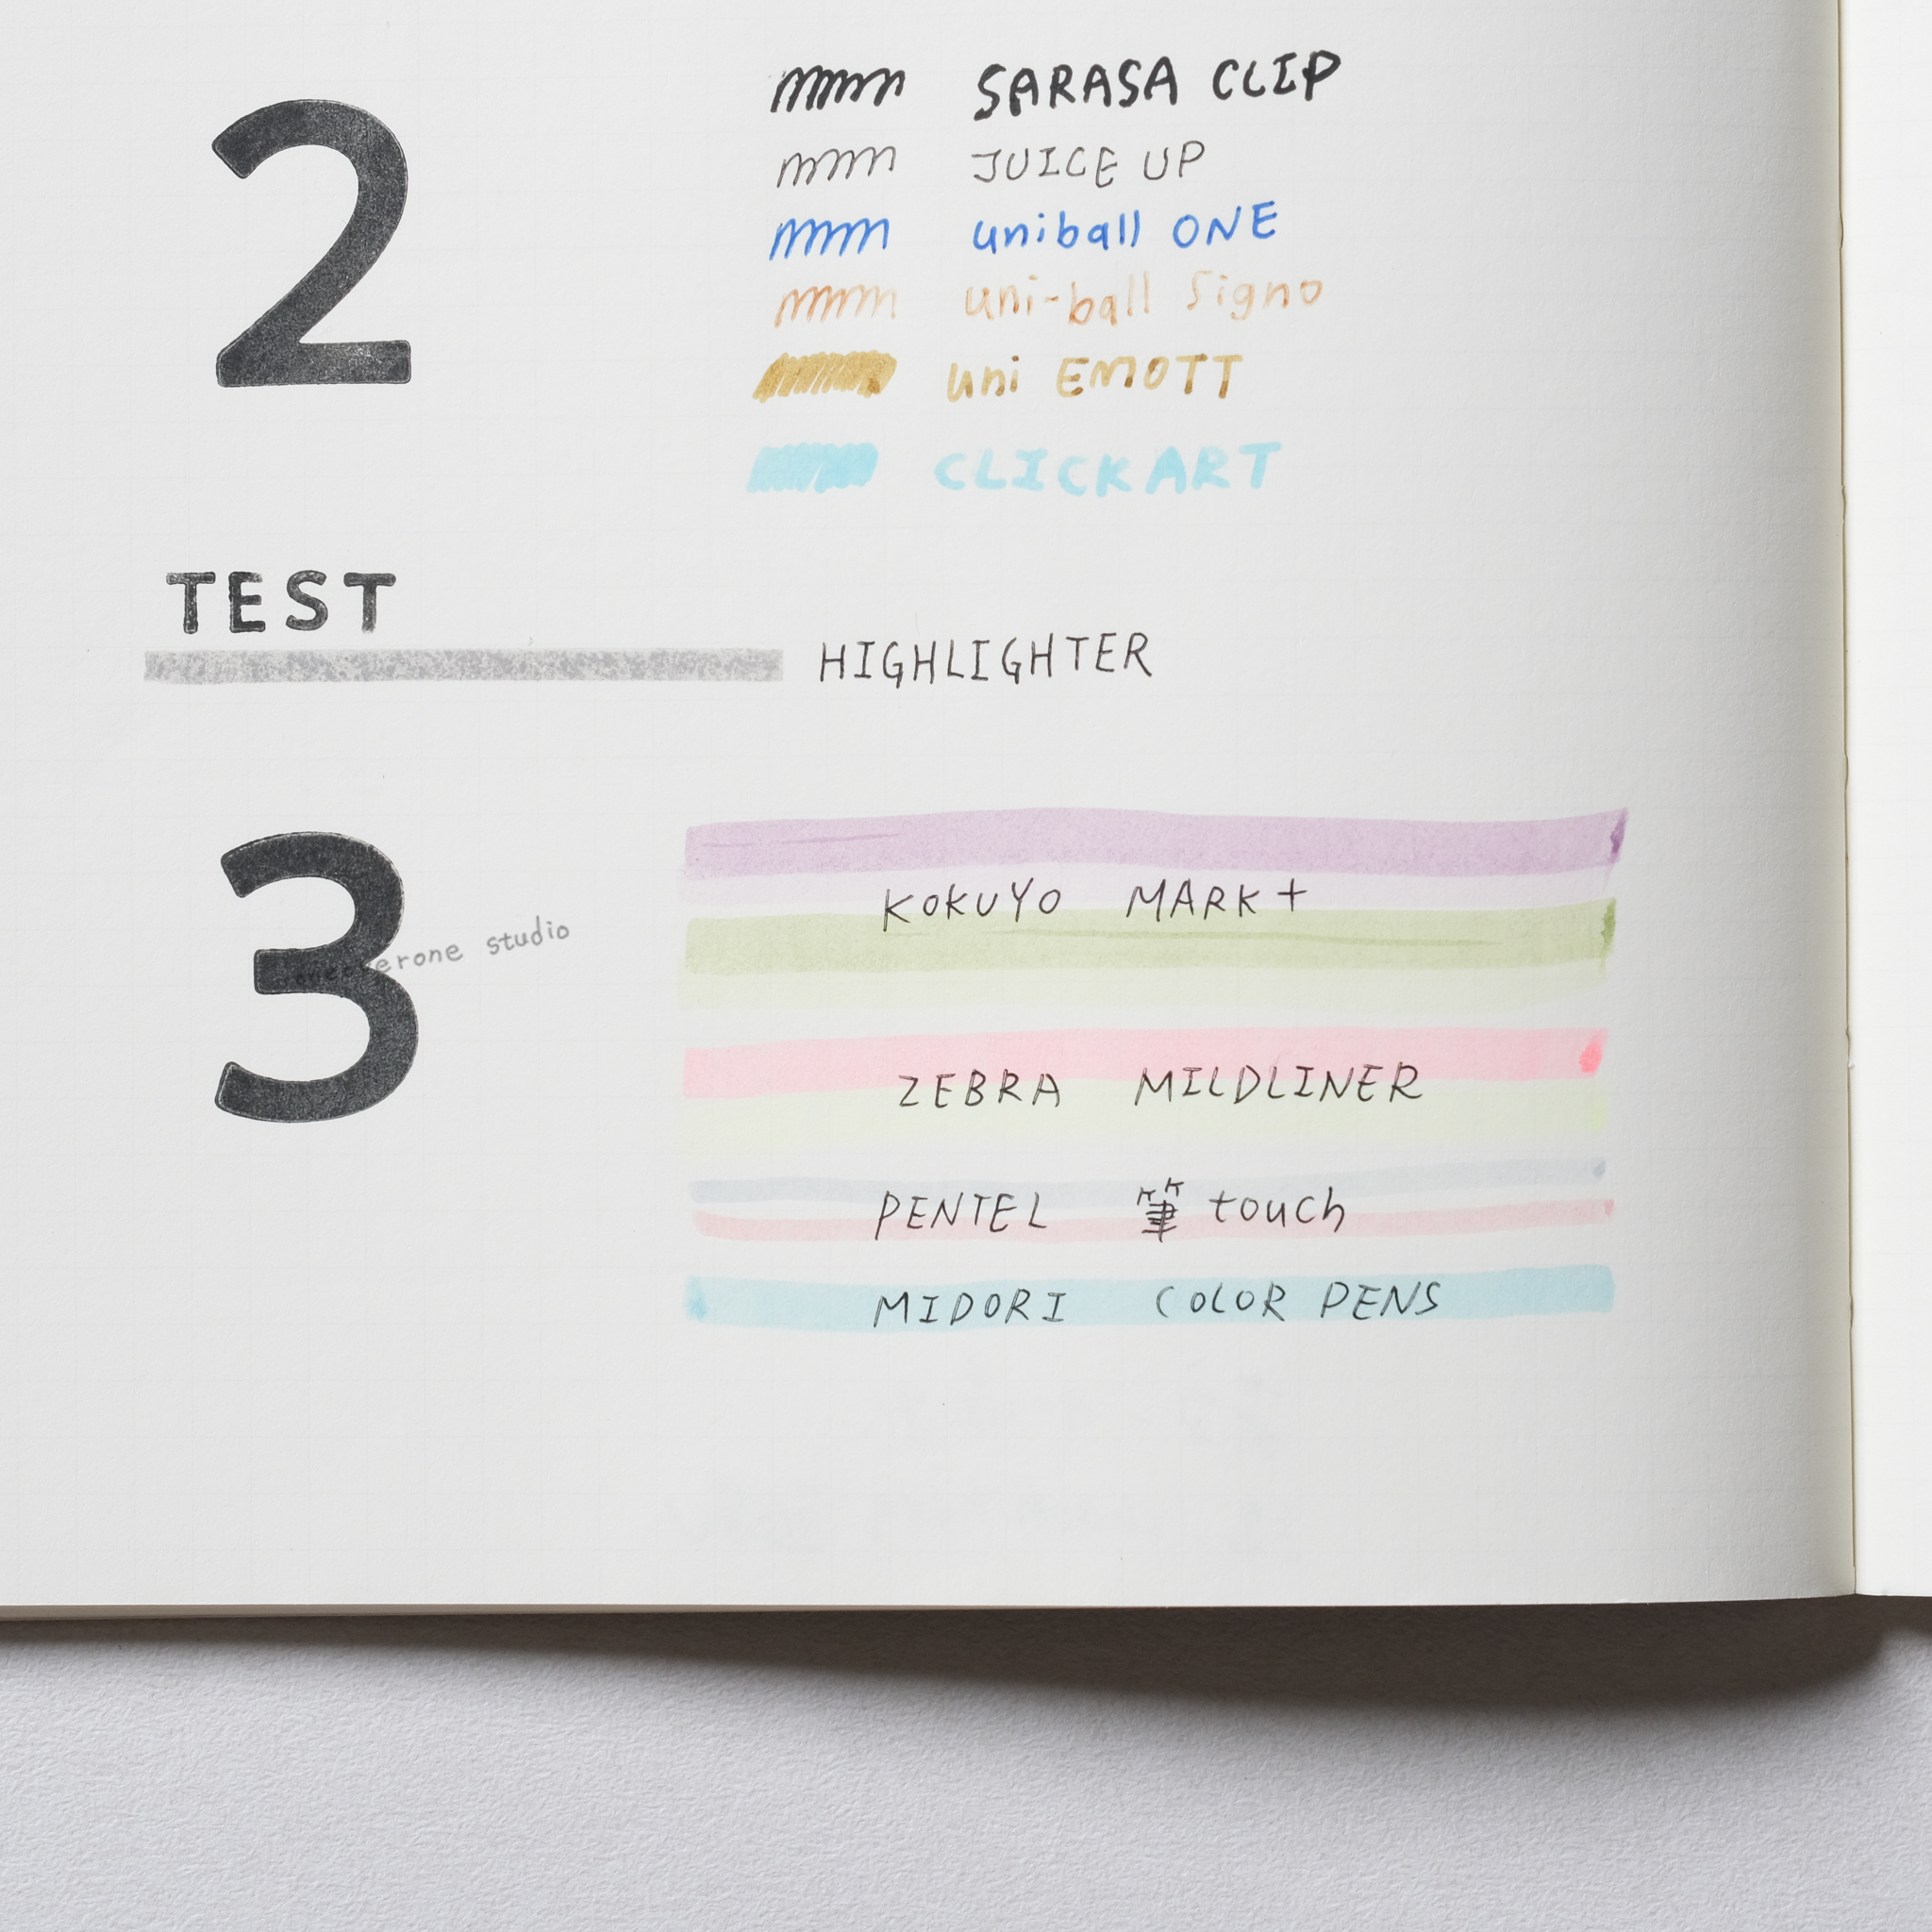 2
SARASA CLIP
JUICE UP
uniball ONE
uni-ball Signo
uni EMOTT
CLICKART
TEST
HIGHLIGHTER
3
studio
KOKUYO MARK+
ZEBRA MILDLINER
PENTEL 筆 touch
MIDORI COLOR PENS